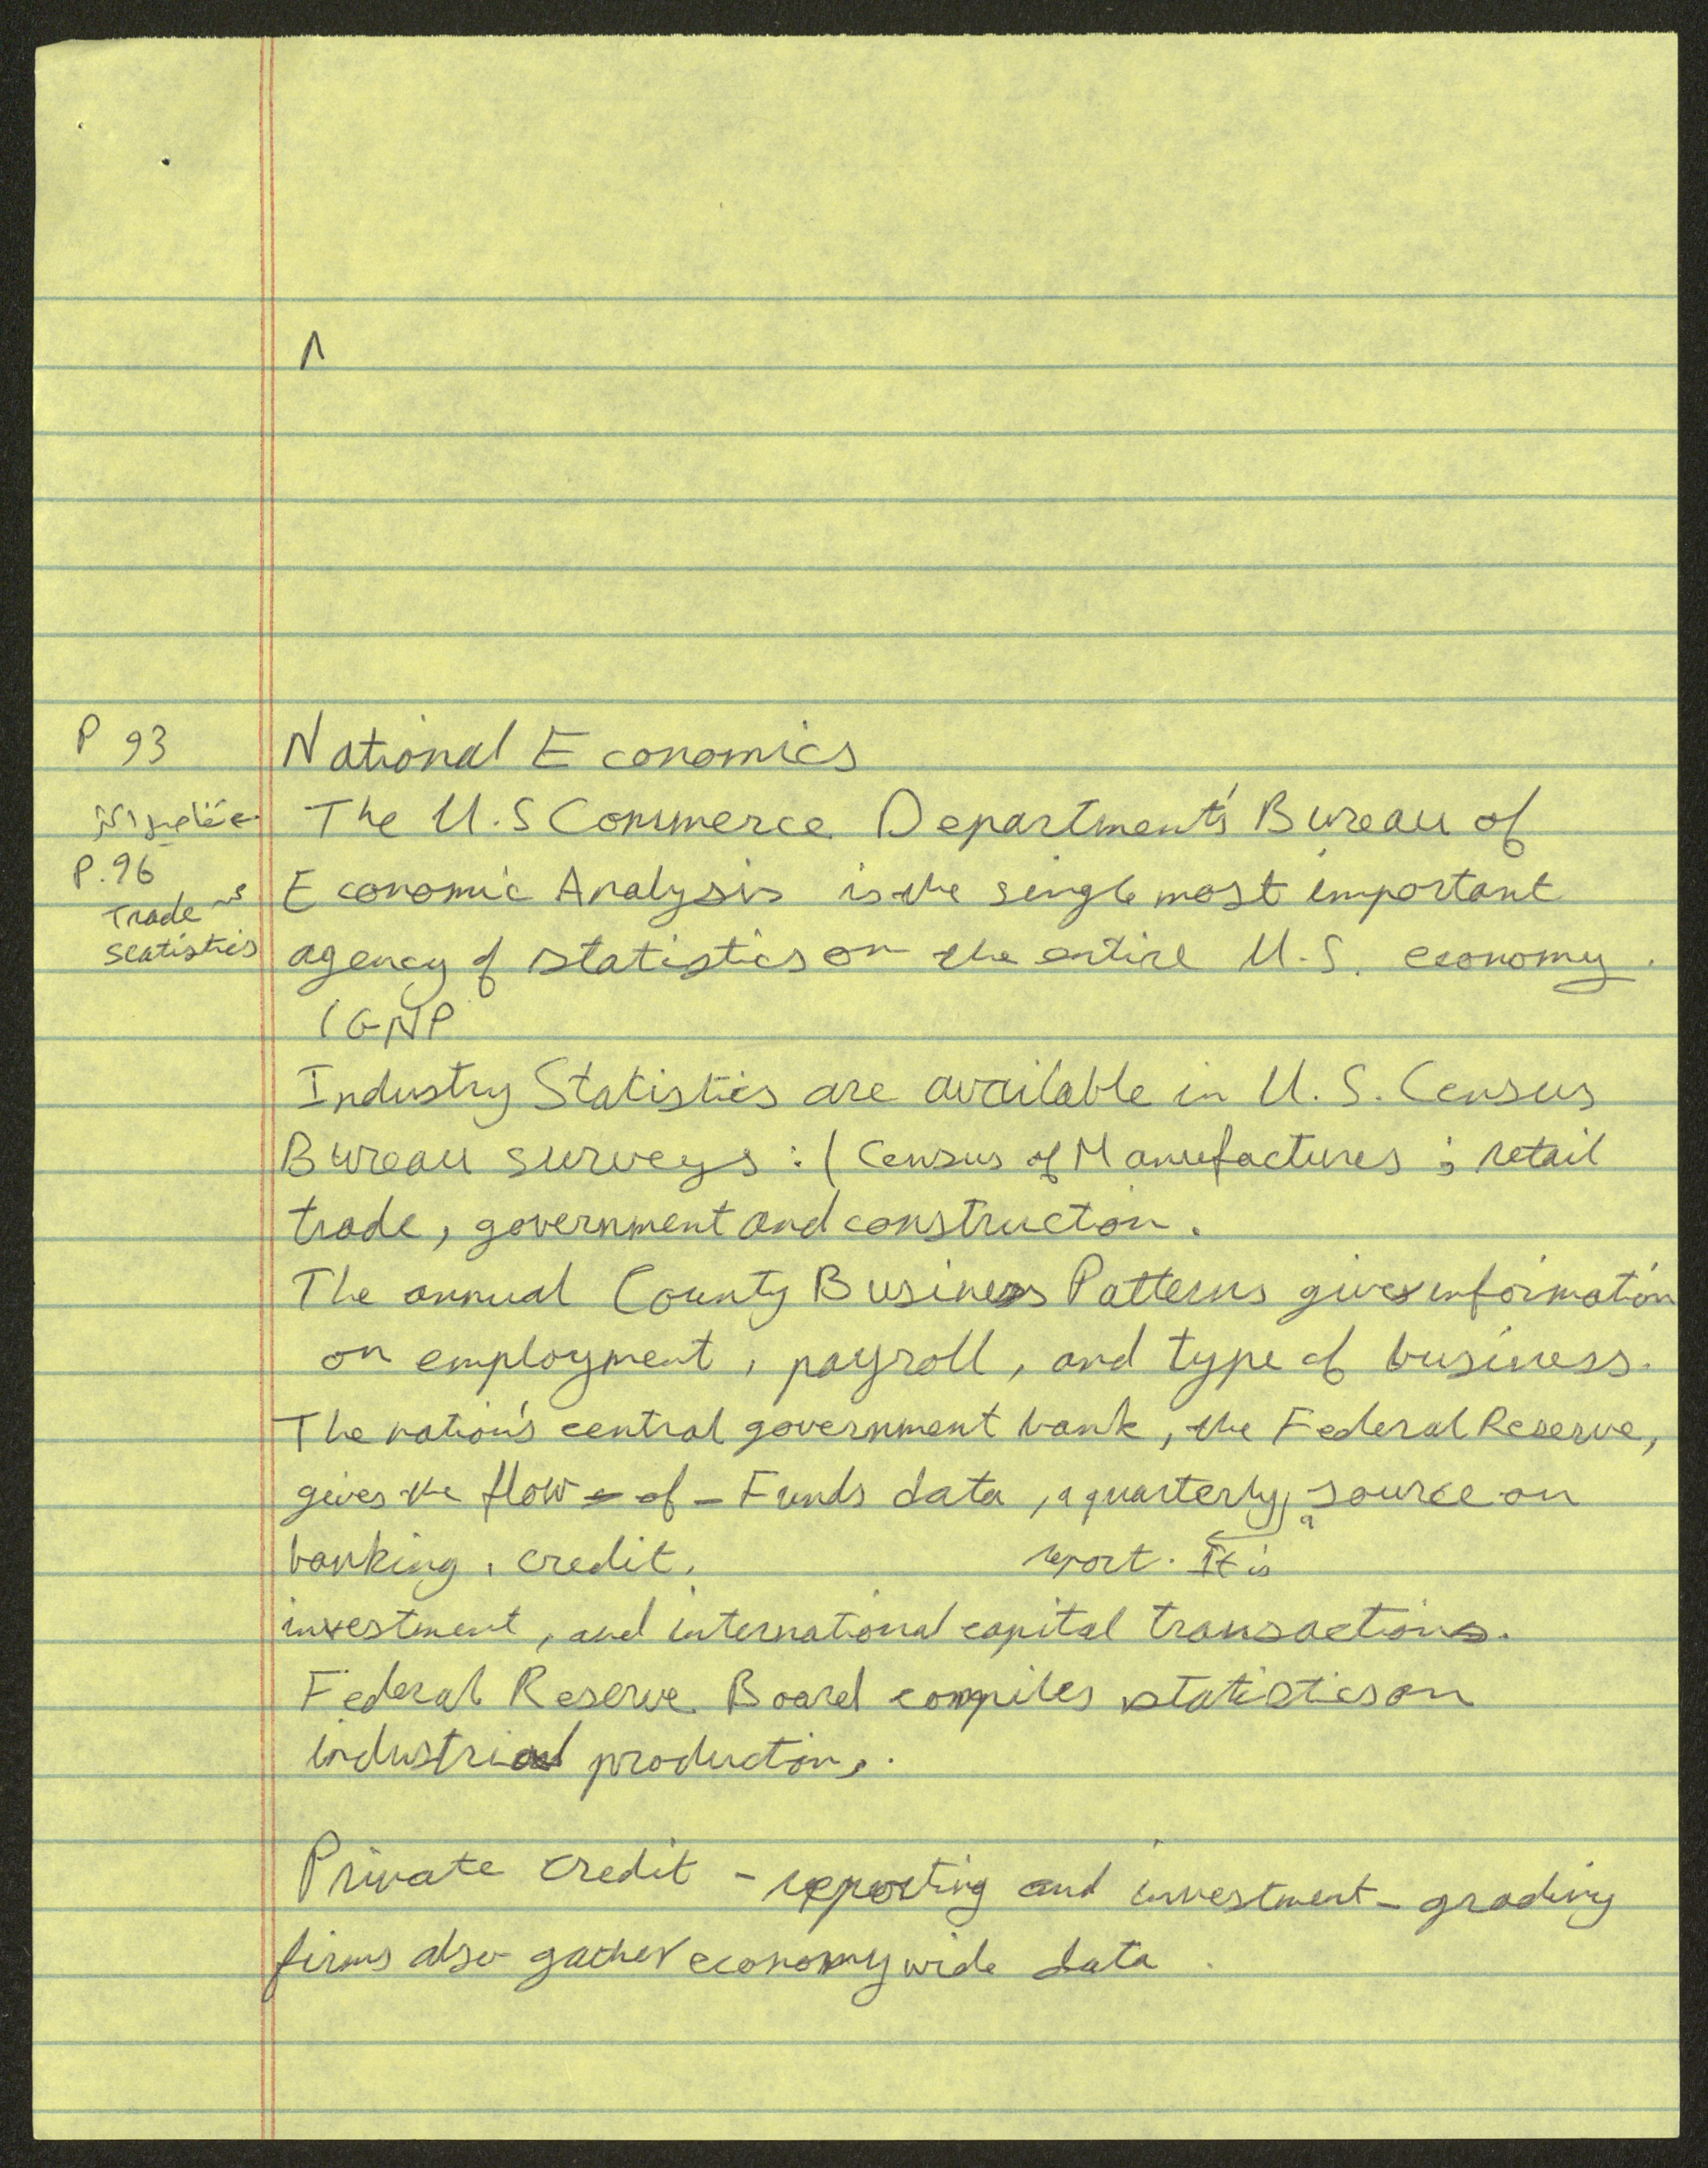 P 93
National Economics
The U.S Commerce Department's Bureau of
P.96
Economic Analysis is the single most important
Trade
Statistics
agency of statistics on the entire U.S. economy.
(GNP
Industry Statistics are available in U.S. Census
Bureau surveys : ( Census of Manufactures ; retail
trade, government and construction.
The annual County Business Patterns gives information
on employment, payroll, and type of business.
The nation's central government bank, the Federal Reserve,
gives the flow - of - Funds data, a quarterly, source on
a
banking, credit,
report. It is
investment, and international capital transactions.
Federal Reserve Board compiles statistics on
industrial production,.
Private credit - reporting and investment - grading
firms also gather economy wide data.